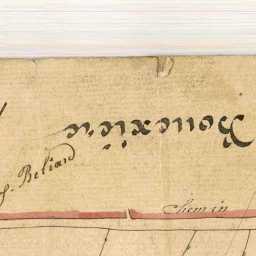 Bouexière
f. Beliard
Chemin